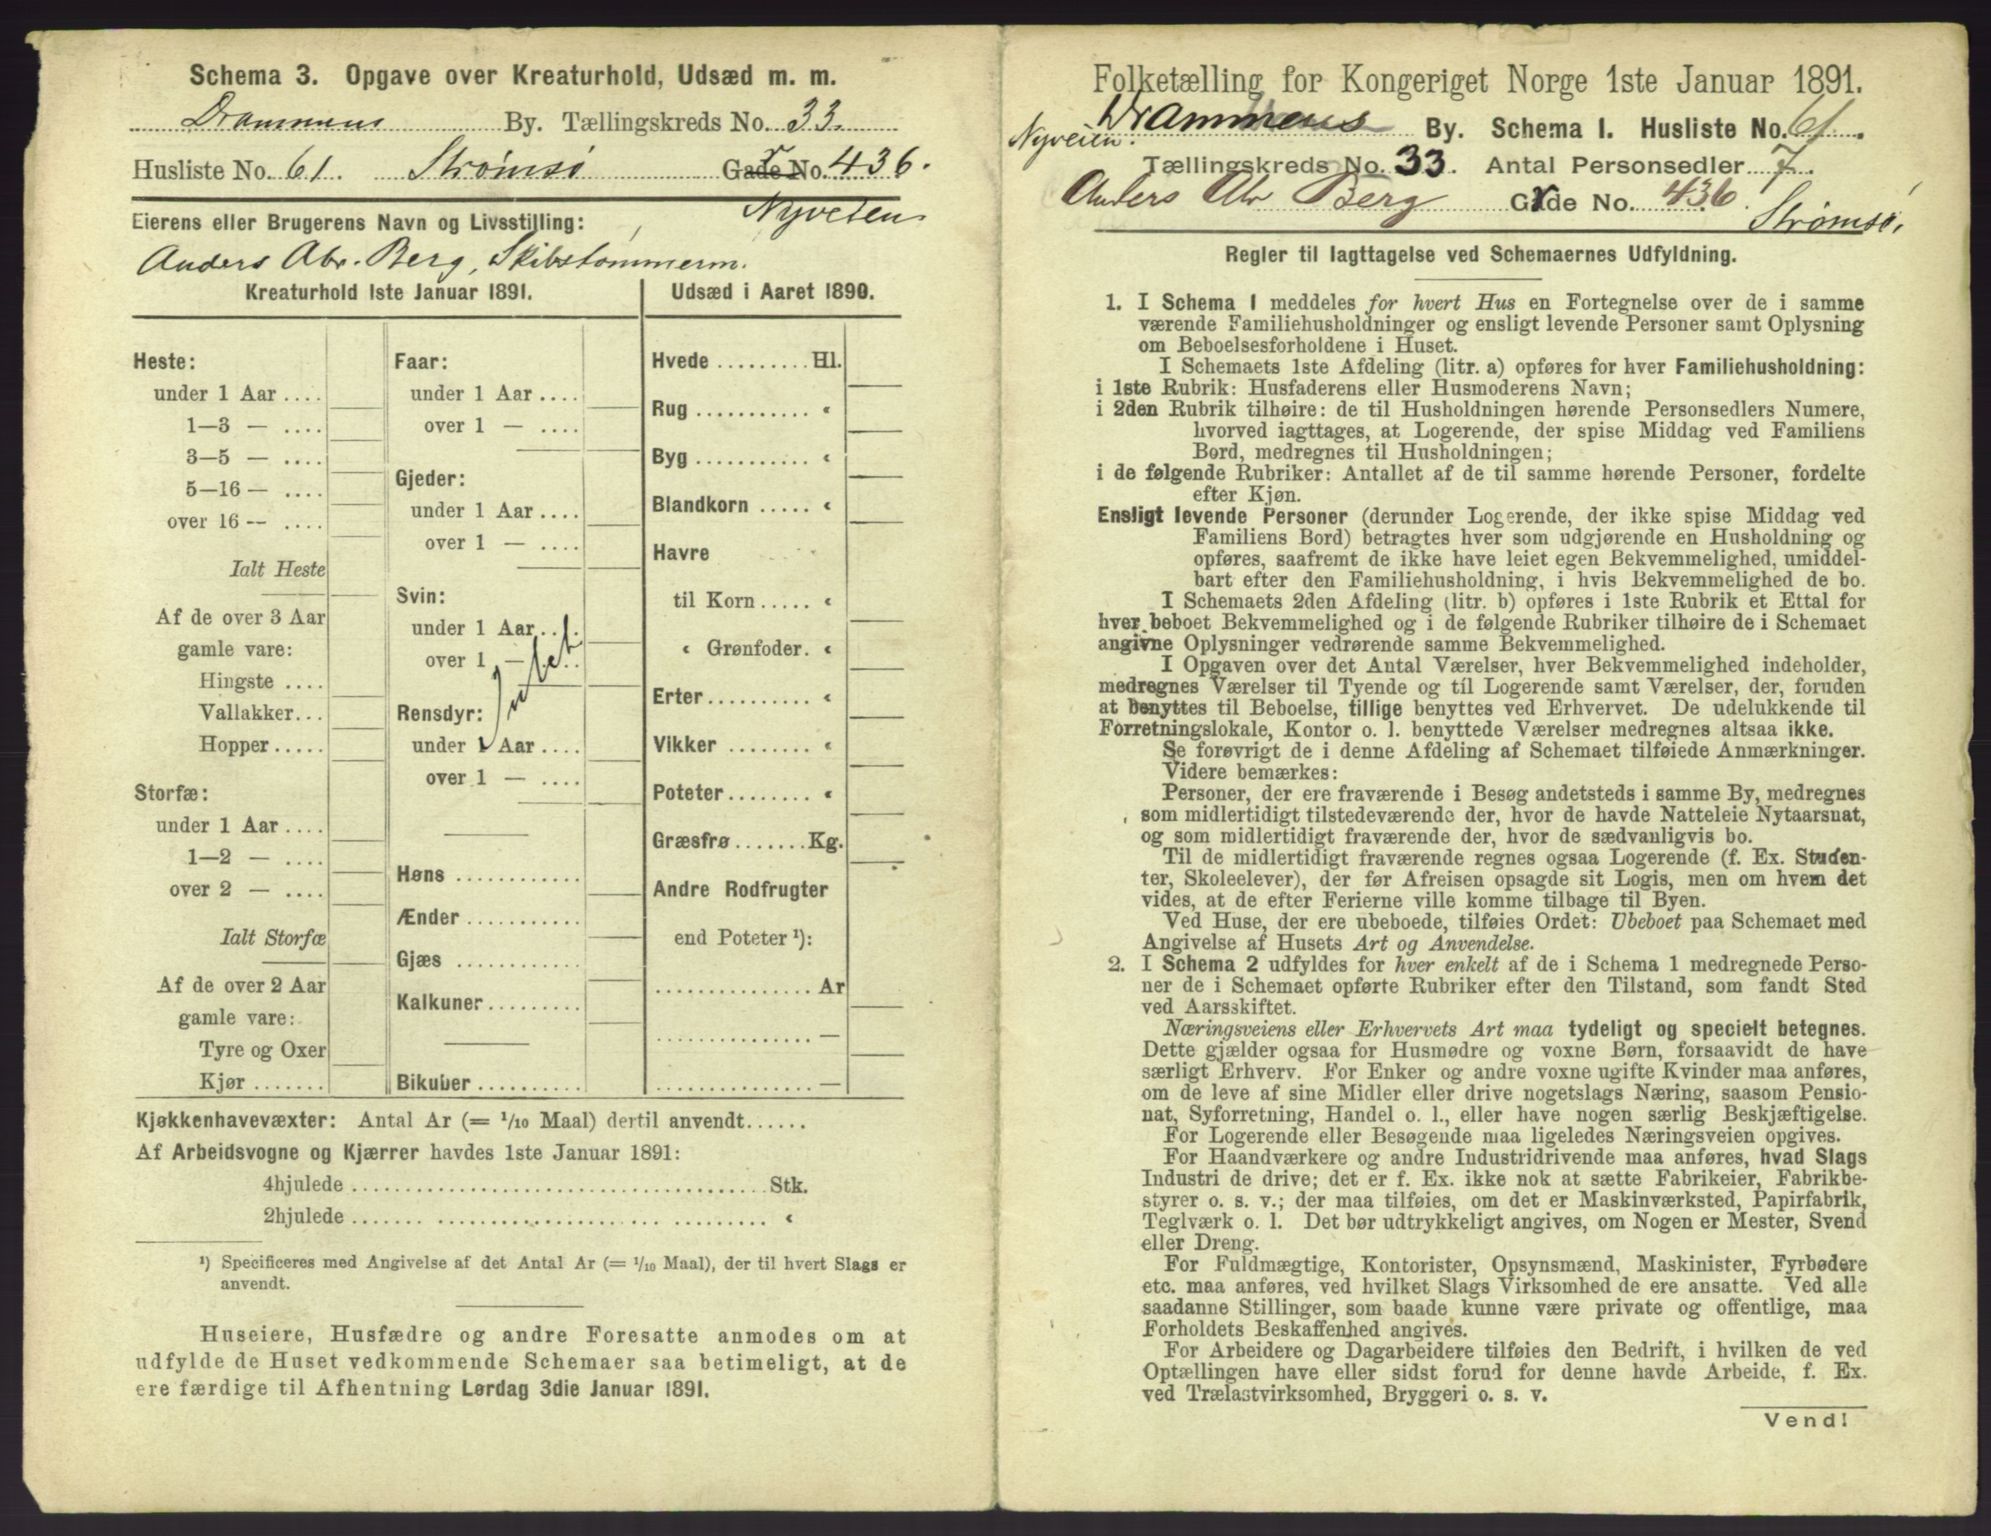 Schema 3. Opgave over Kreaturhold, Udsæd m. m.
Drammens By. Tællingskreds No. 33.
Husliste No. 61. Strømsø Gade No. 436.
Nyveien
Eierens eller Brugerens Navn og Livsstilling:
Anders Abr. Berg, Skibstømmerm.
Kreaturhold 1ste Januar 1891.
Heste:
under 1 Aar ....
1—3 — ....
3—5 — ....
5—16 — ....
over 16 — ....
Ialt Heste
Af de over 3 Aar
gamle vare:
Hingste ....
Vallakker...
Hopper .....
Storfæ:
under 1 Aar ....
1—2 — ....
over 2 — ....
Ialt Storfæ
Af de over 2 Aar
gamle vare:
Tyre og Oxer
Kjør .......
Faar:
under 1 Aar ....
over 1 — ....
Gjeder:
under 1 Aar ....
over 1 — ....
Svin:
under 1 Aar ....
over 1 — ....
Intet
Rensdyr:
under 1 Aar ....
over 1 — ....
Høns ............
Ænder ...........
Gjæs ............
Kalkuner.........
Bikuber ..........
Udsæd i Aaret 1890.
Hvede ......... Hl.
Rug ........... «
Byg ........... «
Blandkorn ..... «
Havre
til Korn ..... «
« Grønfoder. «
Erter .......... «
Vikker ......... «
Poteter ........ «
Græsfrø ....... Kg.
Andre Rodfrugter
end Poteter ¹):
............... Ar
............... —
............... —
Kjøkkenhavevæxter: Antal Ar (= 1/10 Maal) dertil anvendt......
Af Arbeidsvogne og Kjærrer havdes 1ste Januar 1891:
4hjulede ........................................ Stk.
2hjulede ........................................ «
¹) Specificeres med Angivelse af det Antal Ar (= 1/10 Maal), der til hvert Slags er
anvendt.
Huseiere, Husfædre og andre Foresatte anmodes om at
udfylde de Huset vedkommende Schemaer saa betimeligt, at de
ere færdige til Afhentning Lørdag 3die Januar 1891.
Folketælling for Kongeriget Norge 1ste Januar 1891.
Drammens By. Schema 1. Husliste No. 61.
Nyveien.
Tællingskreds No. 33. Antal Personsedler 7.
Anders Abr Berg Gade No. 436.
Strømsø,
Regler til Iagttagelse ved Schemaernes Udfyldning.
1. I Schema 1 meddeles for hvert Hus en Fortegnelse over de i samme
værende Familiehusholdninger og ensligt levende Personer samt Oplysning
om Beboelsesforholdene i Huset.
I Schemaets 1ste Afdeling (litr. a) opføres for hver Familiehusholdning:
i 1ste Rubrik: Husfaderens eller Husmoderens Navn;
i 2den Rubrik tilhøire: de til Husholdningen hørende Personsedlers Numere,
hvorved iagttages, at Logerende, der spise Middag ved Familiens
Bord, medregnes til Husholdningen;
i de følgende Rubriker: Antallet af de til samme hørende Personer, fordelte
efter Kjøn.
Ensligt levende Personer (derunder Logerende, der ikke spise Middag ved
Familiens Bord) betragtes hver som udgjørende en Husholdning og
opføres, saafremt de ikke have leiet egen Bekvemmelighed, umiddel-
bart efter den Familiehusholdning, i hvis Bekvemmelighed de bo.
I Schemaets 2den Afdeling (litr. b) opføres i 1ste Rubrik et Ettal for
hver beboet Bekvemmelighed og i de følgende Rubriker tilhøire de i Schemaet
angivne Oplysninger vedrørende samme Bekvemmelighed.
I Opgaven over det Antal Værelser, hver Bekvemmelighed indeholder,
medregnes Værelser til Tyende og til Logerende samt Værelser, der, foruden
at benyttes til Beboelse, tillige benyttes ved Erhvervet. De udelukkende til
Forretningslokale, Kontor o. l. benyttede Værelser medregnes altsaa ikke.
Se forøvrigt de i denne Afdeling af Schemaet tilføiede Anmærkninger.
Videre bemærkes:
Personer, der ere fraværende i Besøg andetsteds i samme By, medregnes
som midlertidigt tilstedeværende der, hvor de havde Natteleie Nytaarsnat,
og som midlertidigt fraværende der, hvor de sædvanligvis bo.
Til de midlertidigt fraværende regnes ogsaa Logerende (f. Ex. Studen-
ter, Skoleelever), der før Afreisen opsagde sit Logis, men om hvem det
vides, at de efter Ferierne ville komme tilbage til Byen.
Ved Huse, der ere ubeboede, tilføies Ordet: Ubeboet paa Schemaet med
Angivelse af Husets Art og Anvendelse.
2. I Schema 2 udfyldes for hver enkelt af de i Schema 1 medregnede Perso-
ner de i Schemaet opførte Rubriker efter den Tilstand, som fandt Sted
ved Aarsskiftet.
Næringsveiens eller Erhvervets Art maa tydeligt og specielt betegnes.
Dette gjælder ogsaa for Husmødre og voxne Børn, forsaavidt de have
særligt Erhverv. For Enker og andre voxne ugifte Kvinder maa anføres,
om de leve af sine Midler eller drive nogetslags Næring, saasom Pensio-
nat, Syforretning, Handel o. l., eller have nogen særlig Beskjæftigelse.
For Logerende eller Besøgende maa ligeledes Næringsveien opgives.
For Haandværkere og andre Industridrivende maa anføres, hvad Slags
Industri de drive; det er f. Ex. ikke nok at sætte Fabrikeier, Fabrikbe-
styrer o. s. v.; der maa tilføies, om det er Maskinværksted, Papirfabrik,
Teglværk o. l. Det bør udtrykkeligt angives, om Nogen er Mester, Svend
eller Dreng.
For Fuldmægtige, Kontorister, Opsynsmænd, Maskinister, Fyrbødere
etc. maa anføres, ved hvilket Slags Virksomhed de ere ansatte. Ved alle
saadanne Stillinger, som baade kunne være private og offentlige, maa
Forholdets Beskaffenhed angives.
For Arbeidere og Dagarbeidere tilføies den Bedrift, i hvilken de ved
Optællingen have eller sidst forud for denne havde Arbeide, f. Ex.
ved Trælastvirksomhed, Bryggeri o. s. v.
Vend!